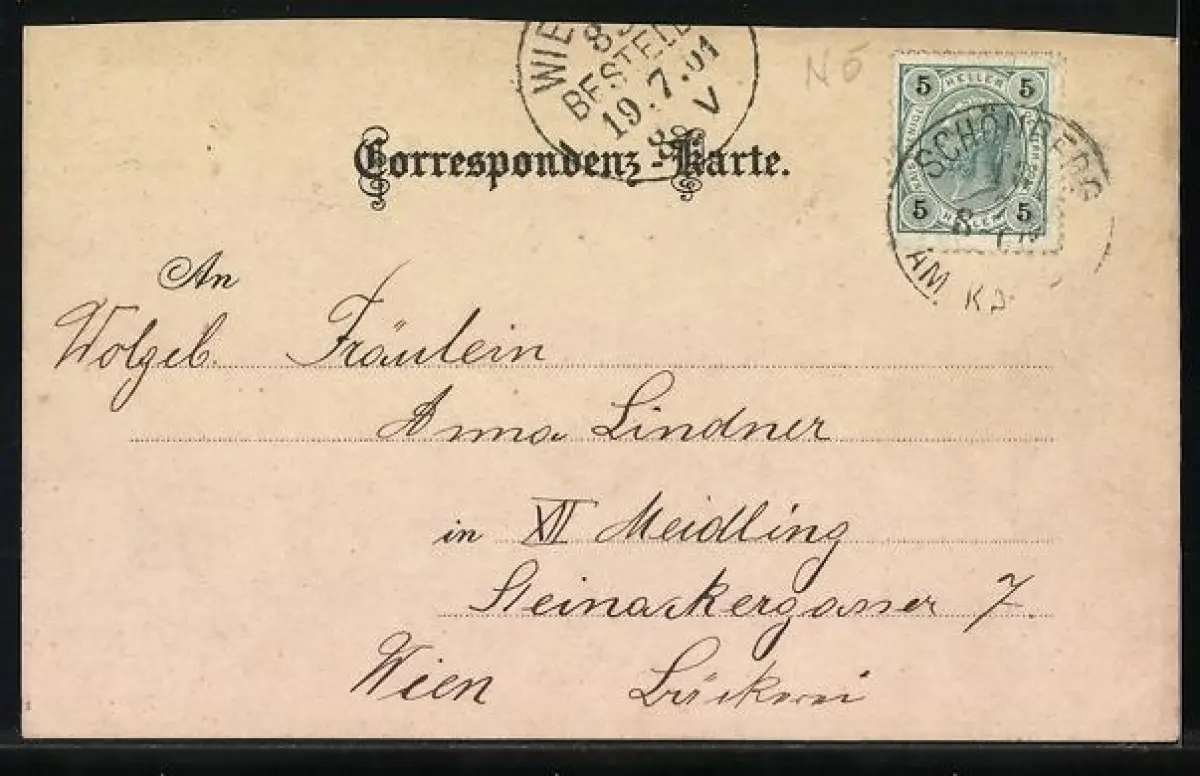 WIE
BESTELL
19.7.01
8
V
NÖ
5 HELLER 5
5 HELLER 5
SCHÖNBERG
AM KA
Correspondenz-Karte.
An
Wolgeb. Fräulein
Anna Lindner
in XII Meidling
Steinackergasse 7.
Wien Bäckerei